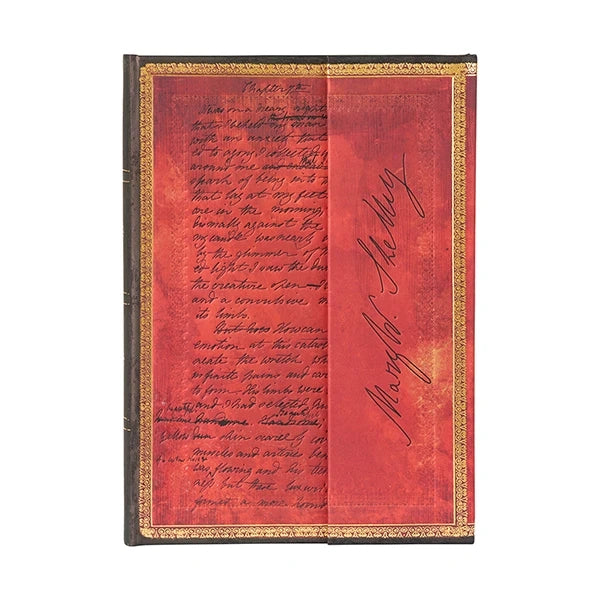 Chapter 7th
It was on a dreary night
that I beheld my man
with an anxiety that
ed to agony, I collected
around me
spark of being into t
that lay at my feet
one in the morning,
dismally against the
my candle was nearly
by the glimmer of
ed light I saw the du
the creature open
and a convulsive m
its limbs.
But how How can
emotion at this catas
create the wretch
infinite pains and car
to form His limbs were
and I had selected
handsome
yellow skin scarcely cov
muscles and arteries bene
was flowing and his tee
ness but these luxuri
formed a more horri
Mary W. Shelley